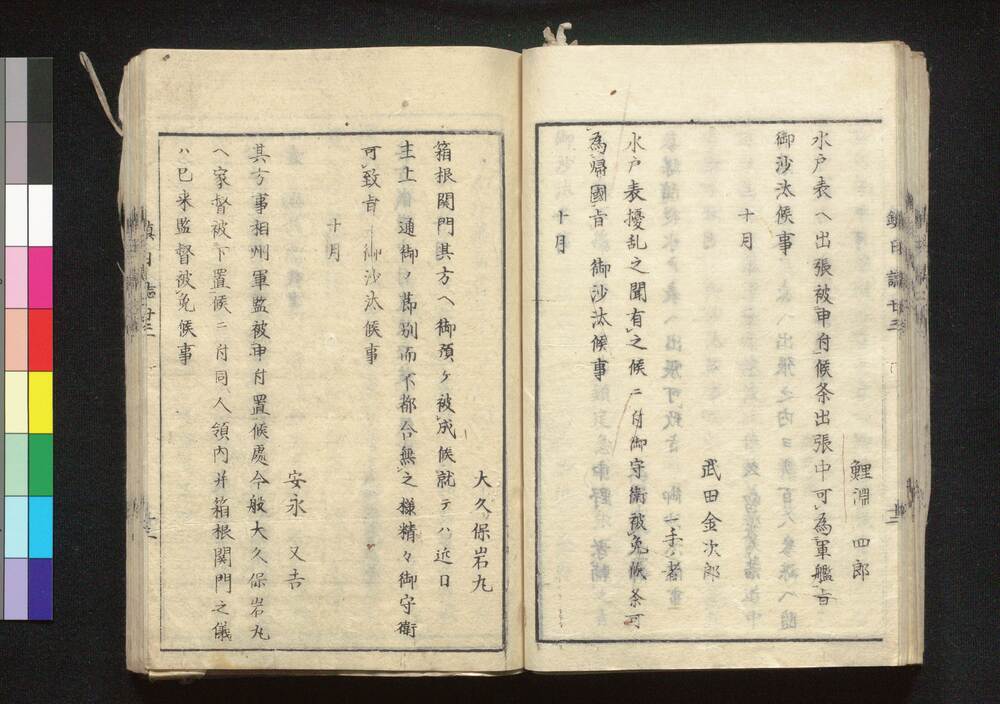 鯉淵 四郎
水戸表ヘ出張被申付候条出張中可為軍艦旨
御沙汰候事
十月
武田金次郎
一手ノ者
水戸表擾乱之聞有之候ニ付御守衛被免候条可
為帰國旨御沙汰候事
十月
大久保岩丸
箱根関門其方ヘ御預ケ被成候就テハ近日
主上 通御ノ節別而不都合無之様精々御守衛
可致旨御沙汰候事
十月
安永 又吉
其方事相州軍監被申付置候處今般大久保岩丸
ヘ家督被下置候ニ付同人領内并箱根関門之儀
ハ已来監督被免候事